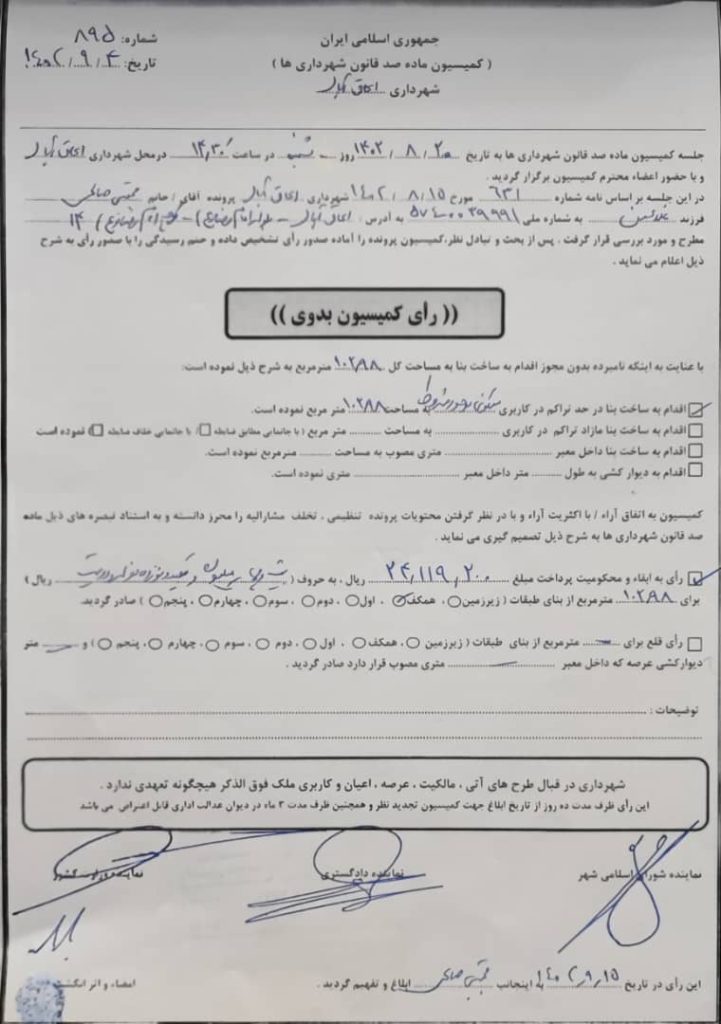 جمهوری اسلامی ایران
( کمیسیون ماده صد قانون شهرداری ها )
شهرداری
شماره: ۸۹۵
تاریخ: ۱۴۰۲/۹/۴
جلسه کمیسیون ماده صد قانون شهرداری ها به تاریخ ۱۴۰۲/۸/۲۰ روز شنبه در ساعت ۱۴,۳۰ درمحل شهرداری
و با حضور اعضاء محترم کمیسیون برگزار گردید .
در این جلسه بر اساس نامه شماره ۶۳۱ مورخ ۱۴۰۲/۸/۱۵ شهرداری پرونده آقای / خانم مجتبی صالحی
فرزند به شماره ملی به آدرس :
مطرح و مورد بررسی قرار گرفت . پس از بحث و تبادل نظر،کمیسیون پرونده را آماده صدور رأی تشخیص داده و ختم رسیدگی را با صدور رأی به شرح
ذیل اعلام می نماید .
(( رأی کمیسیون بدوی ))
با عنایت به اینکه نامبرده بدون مجوز اقدام به ساخت بنا به مساحت کل ۱۰۲.۹۸ مترمربع به شرح ذیل نموده است:
اقدام به ساخت بنا در حد تراکم در کاربری به مساحت متر مربع نموده است.
اقدام به ساخت بنا مازاد تراکم در کاربری به مساحت متر مربع ( با جانمایی مطابق ضابطه / با جانمایی خلاف ضابطه ) نموده است
اقدام به ساخت بنا داخل معبر متری مصوب به مساحت مترمربع نموده است.
اقدام به دیوار کشی به طول متر داخل معبر متری نموده است.
کمیسیون به اتفاق آراء / با اکثریت آراء و با در نظر گرفتن محتویات پرونده تنظیمی ، تخلف مشارالیه را محرز دانسته و به استناد تبصره های ذیل ماده
صد قانون شهرداری ها به شرح ذیل تصمیم گیری می نماید .
رأی به ابقاء و محکومیت پرداخت مبلغ ۲۴,۱۱۹,۲۰۰ ریال ، به حروف ( ریال )
برای ۱۰۲.۹۸ مترمربع از بنای طبقات ( زیرزمین ، همکف ، اول ، دوم ، سوم ، چهارم ، پنجم ) صادر گردید.
رأی قلع برای مترمربع از بنای طبقات ( زیرزمین ، همکف ، اول ، دوم ، سوم ، چهارم ، پنجم ) و متر
دیوارکشی عرصه که داخل معبر متری مصوب قرار دارد صادر گردید .
توضیحات :
شهرداری در قبال طرح های آتی ، مالکیت ، عرصه ، اعیان و کاربری ملک فوق الذکر هیچگونه تعهدی ندارد .
این رأی ظرف مدت ده روز از تاریخ ابلاغ جهت کمیسیون تجدید نظر و همچنین ظرف مدت ۳ ماه در دیوان عدالت اداری قابل اعتراض می باشد
نماینده شورای اسلامی شهر
نماینده دادگستری
نماینده وزارت کشور
این رأی در تاریخ ۱۴۰۲,۹,۱۵ به اینجانب مجتبی صالحی ابلاغ و تفهیم گردید .
امضاء و اثر انگشت